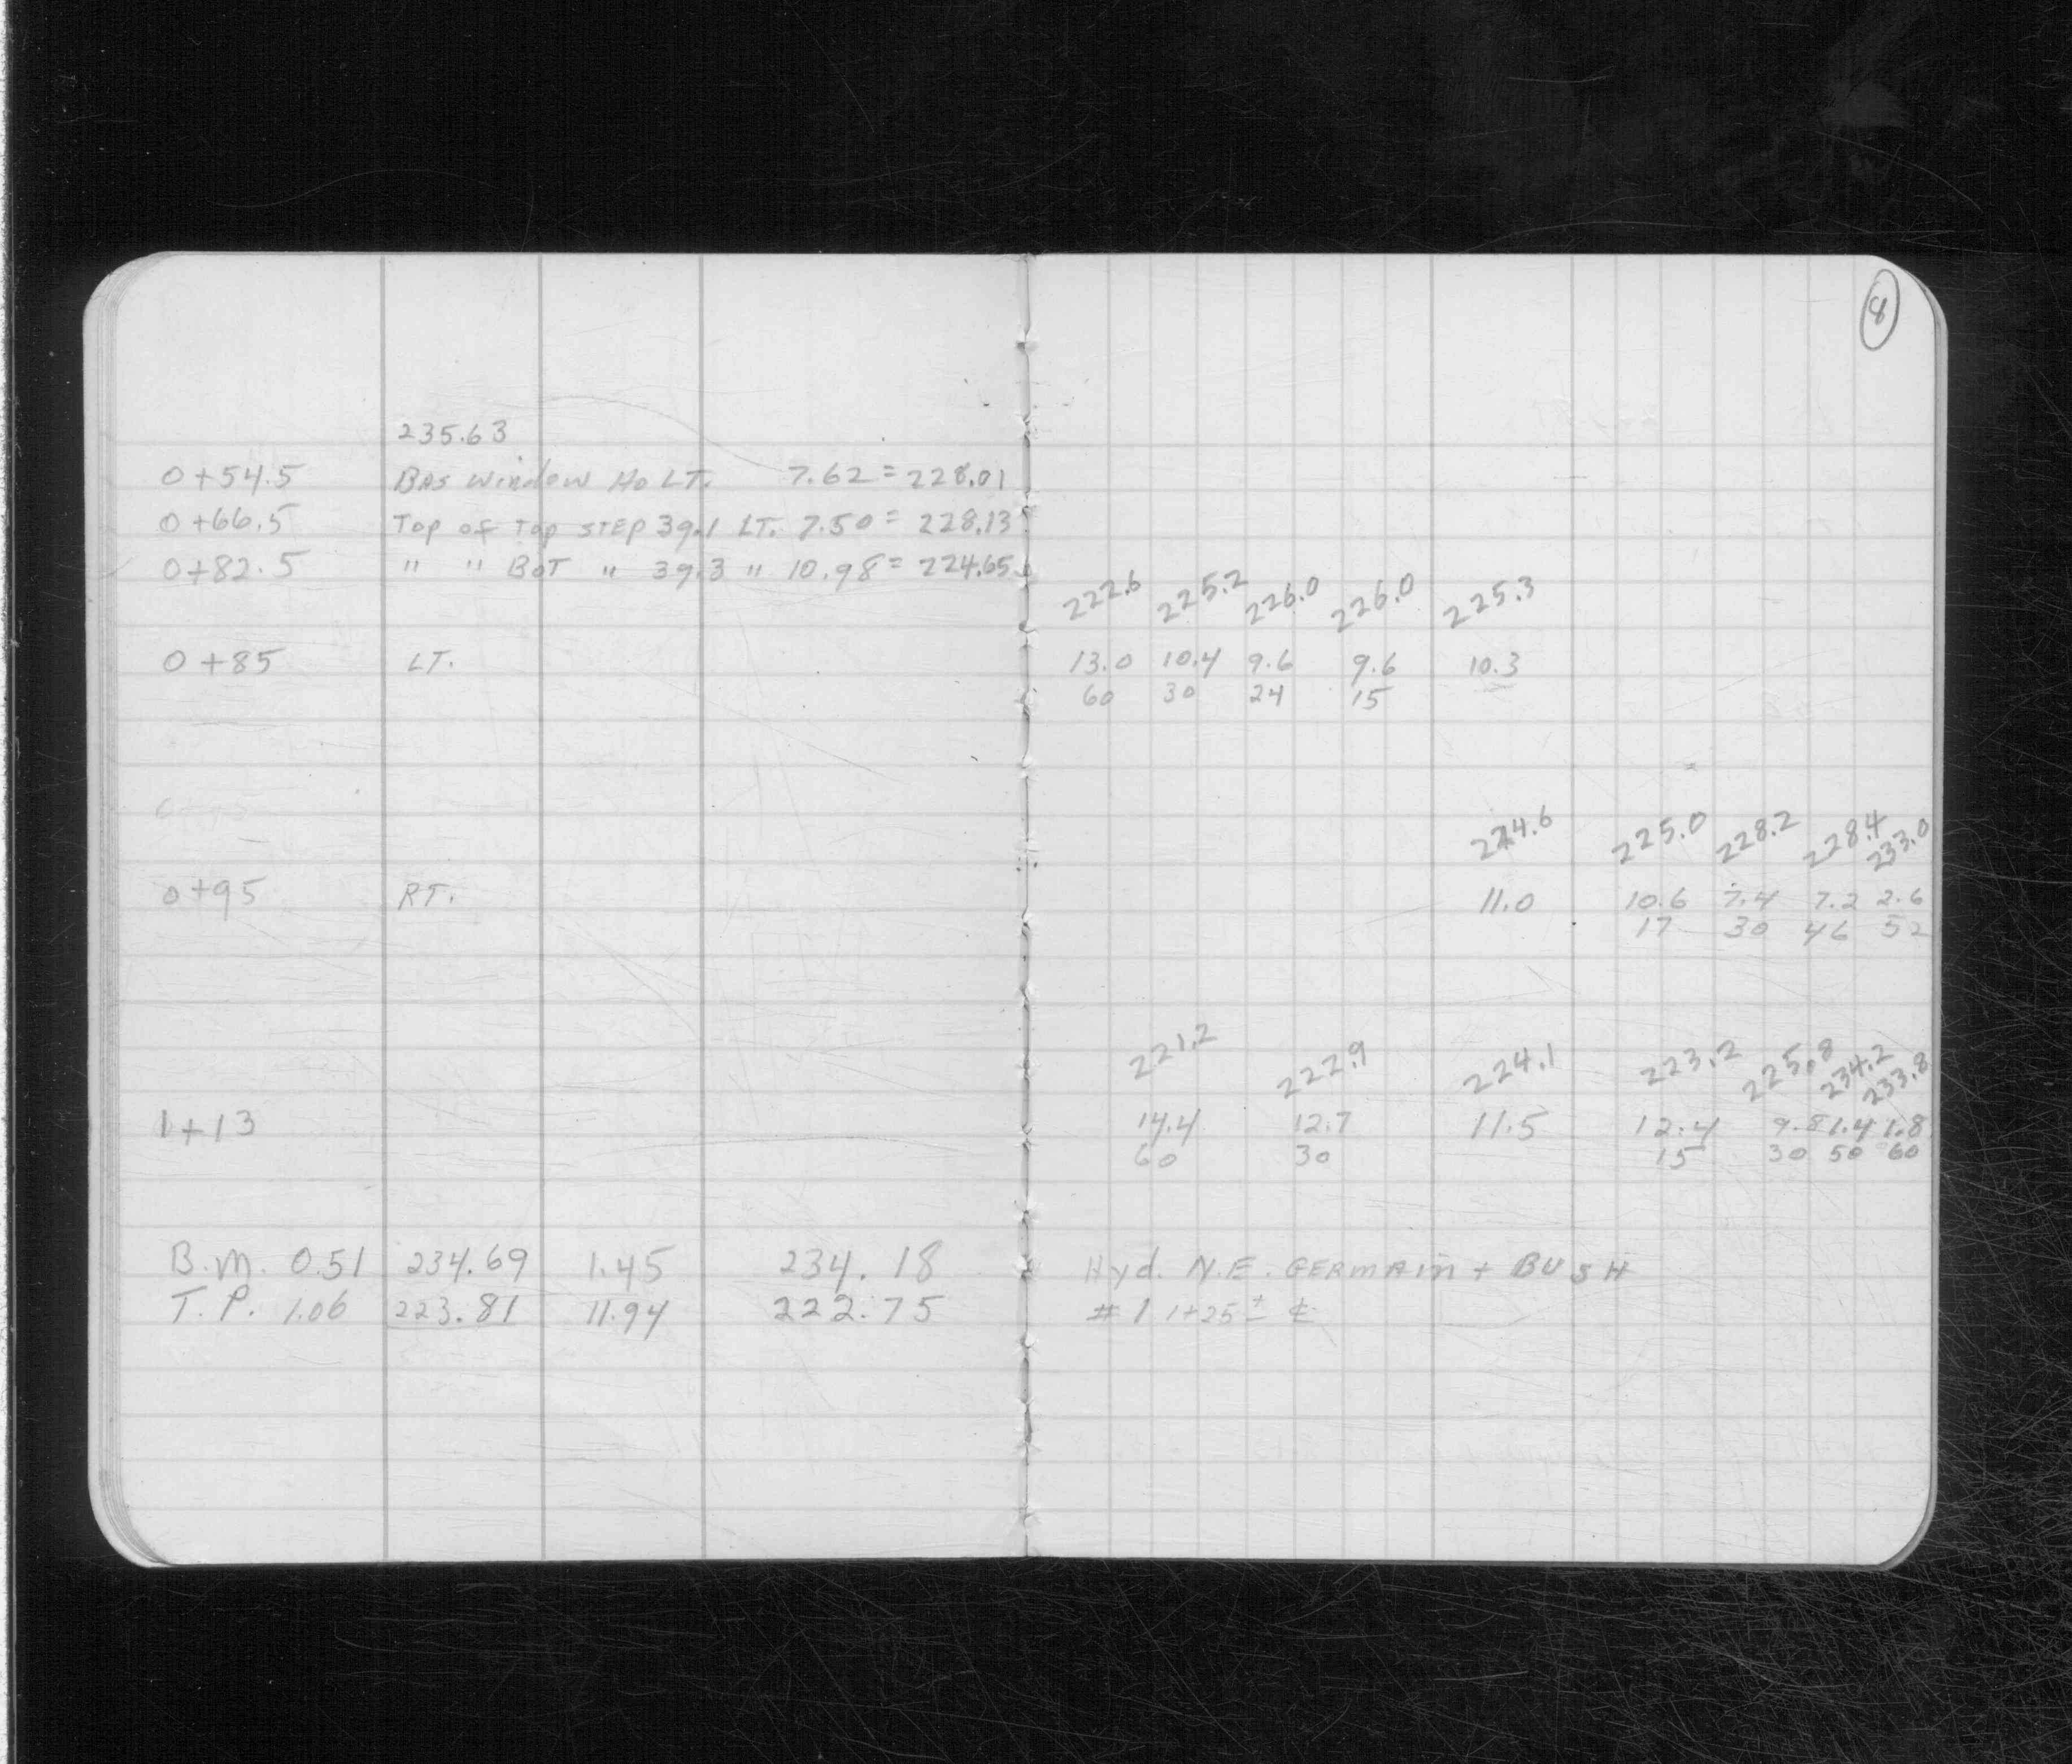 8
235.63
0+54.5 Bas Window 40 LT. 7.62 = 228.01
0+66.5 Top of Top STEP 39.1 LT. 7.50 = 228.13
0+82.5 " " BOT " 39.3 " 10.98 = 224.65
222.6 225.2 226.0 226.0 225.3
0+85 LT. 13.0 10.4 9.6 9.6 10.3
60 30 24 15
224.6 225.0 228.2 228.4 233.0
0+95 RT. 11.0 10.6 7.4 7.2 2.6
17 30 46 52
221.2 222.9 224.1 223.2 225.8 234.2 233.8
1+13 14.4 12.7 11.5 12.4 9.8 1.4 1.8
60 30 15 30 50 60
B.M. 0.51 234.69 1.45 234.18 Hyd. N.E. GERMAin + BUSH
T.P. 1.06 223.81 11.94 222.75 # 1 1+25 ± ¢